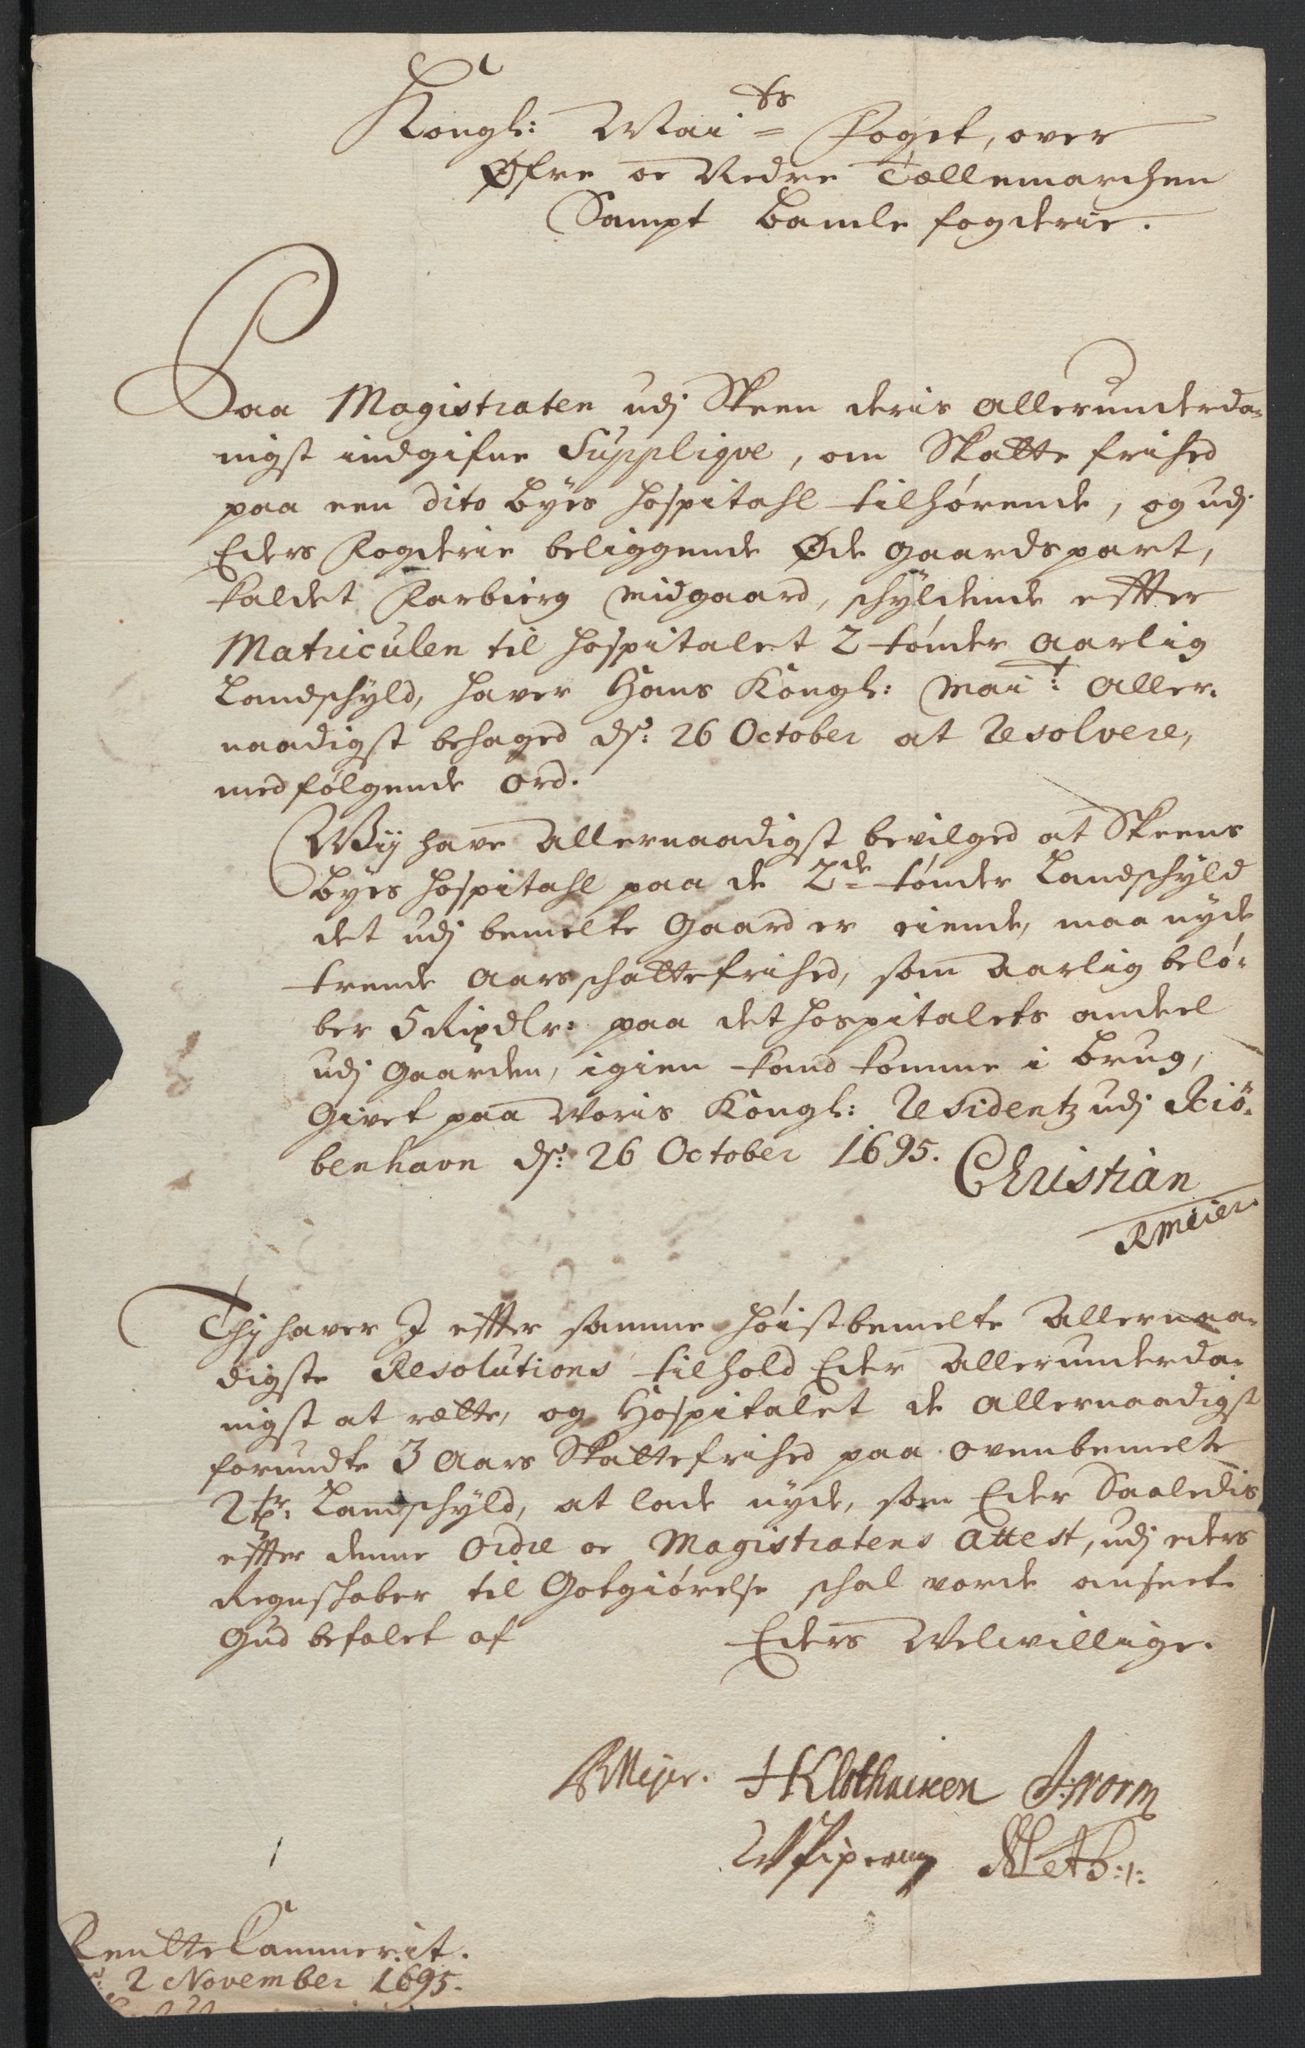 Kongl: Mai ts Foget, over
Øfre oc Nedre Tellemarchen
Sampt Bamle fogderie.
Paa Magistraten udj Skeen deris allerunderda-
nigst indgifne Supplique, om Skatte frihed
paa een dito byes Hospitahl tilhørende, og udj
Eders Fogderie beliggende Øde gaardspart,
kaldet Farbierg midgaard, schyldende effter
Matriculen til Hospitalet 2 tønder aarlig
Landschyld, haver Hans Kongl: Mait: aller-
naadigst behaged ds: 26 October at Resolvere,
med følgende ord.
Wij have allernaadigst bevilged at Skeens
byes Hospitahl paa de 2de tønder Landschyld
det udj bemelte Gaard er eiende, maa nyde
trende aars schattefrihed, som aarlig belø-
ber 5 Rixdlr: paa det Hospitalets andeel
udj Gaarden, igien kand komme i brug,
Givet paa Voris Kongl: Residentz udj Kiø-
benhavn ds: 26 October 1695. Christian
RMeier.
Thj haver I effter samme høistbemelte allernaa-
digste Resolutions tilhold Eder allerunderda-
nigst at rætte, og Hospitalet de allernaadigst
forundte 3 aars Skattefrihed paa ovenbemelte
2 tr: Landschyld, at lade nyde, som Eder Saaledis
effter denne Ordre oc Magistratens Attest, udj eders
Regnschaber til Gotgiørelse schal vorde anseet.
Gud befalet af Eders Velvillige.
RMejer. HKlothacken J: Worm
WPiperung
RentteCammerit.
2 November 1695.